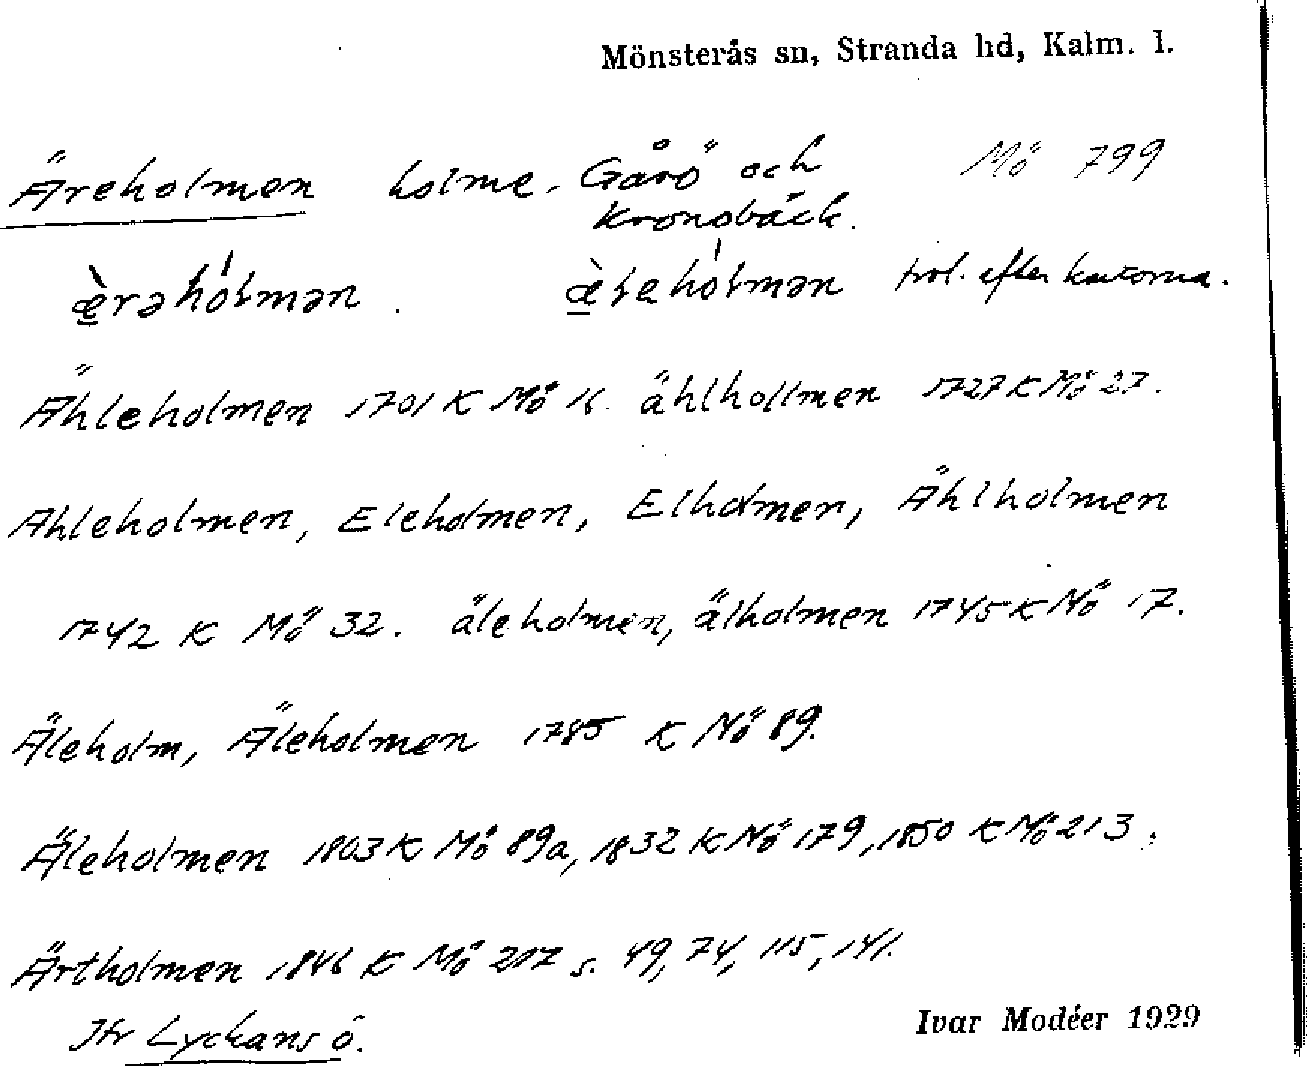 Mönsterås sn, Stranda hd, Kalm. l.
Äreholmen holme. Gårö och Mö 799
Kronobäck.
æ̀rəhólmən. æ̀leholmən trol. efter kartorna.
Ähleholmen 1701 K Mö 16. ählhollmen 1727 K Mö 27.
Ahleholmen, Eleholmen, Elholmen, Åhlholmen
1742 K Mö 32. äleholmen, älholmen 1745 K Mö 17.
Äleholm, Äleholmen 1785 K Mö 89.
Äleholmen 1803 K Mö 89a, 1832 K Mö 179, 1850 K Mö 213.
Ärtholmen 1846 K Mö 207 s. 49, 74, 115, 141.
Jfr Lyckans ö.
Ivar Modéer 1929